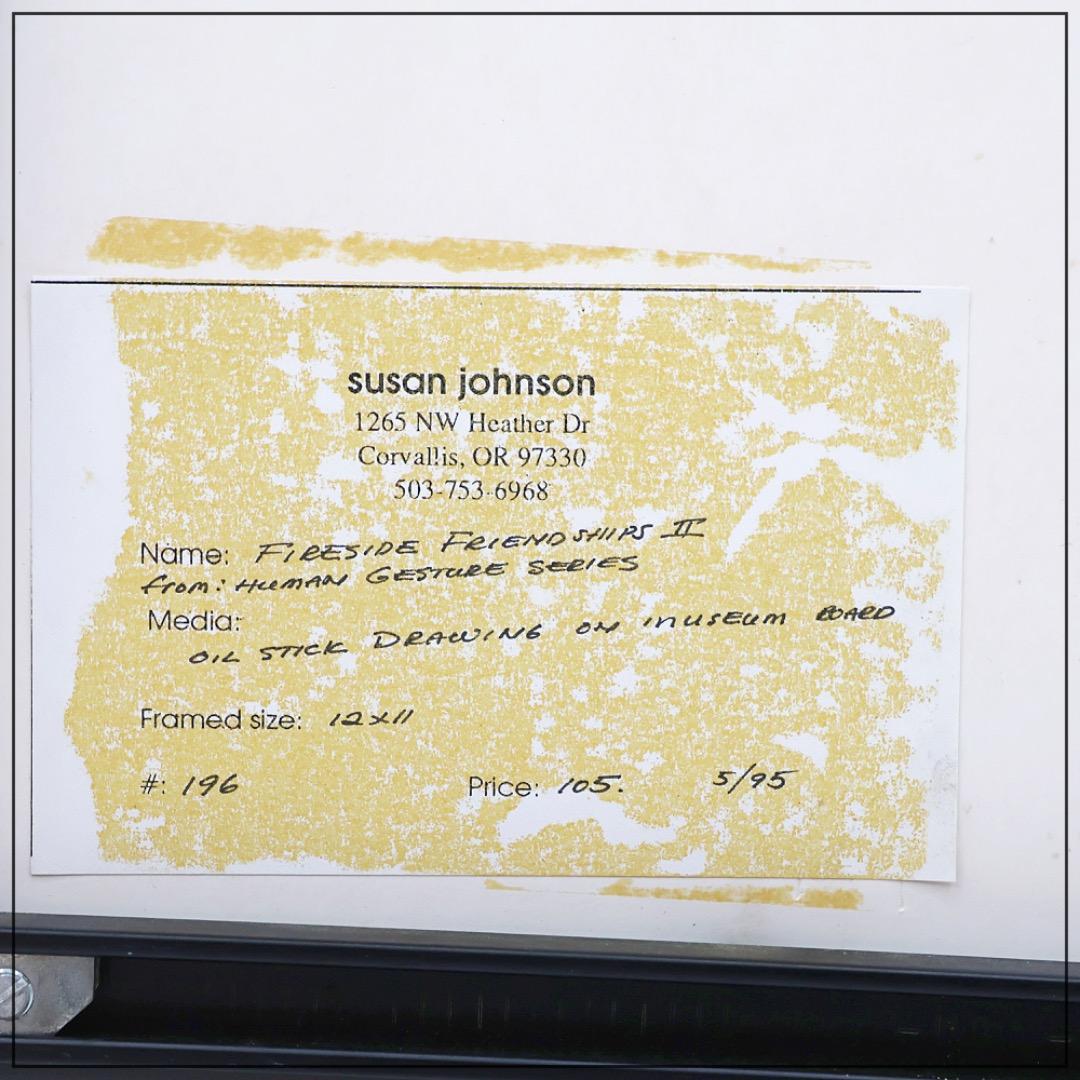 susan johnson
1265 NW Heather Dr
Corvallis, OR 97330
503-753-6968
Name: FIRESIDE FRIENDSHIPS II
from: HUMAN GESTURE SERIES
Media:
OIL STICK DRAWING ON MUSEUM BOARD
Framed size: 12x11
#: 196 Price: 105. 5/95